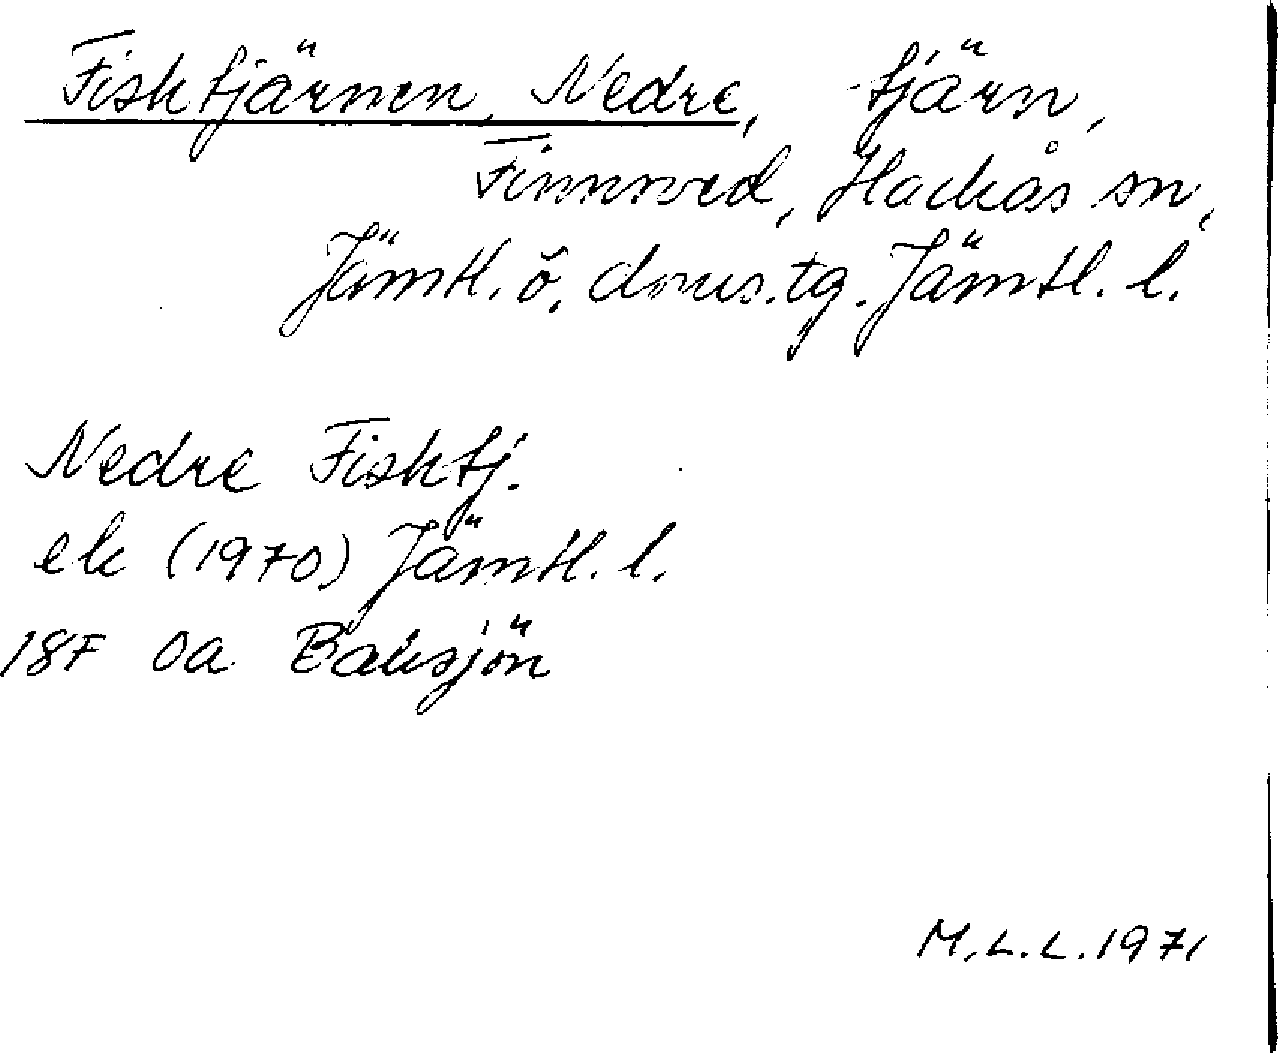 Fisktjärnen, Nedre, tjärn,
Finnsved, Hackås sn,
Jämtl. ö. doms.tg. Jämtl. l.
Nedre Fisktj.
ek (1970) Jämtl. l.
18F 0a Baksjön
M.L.L. 1971